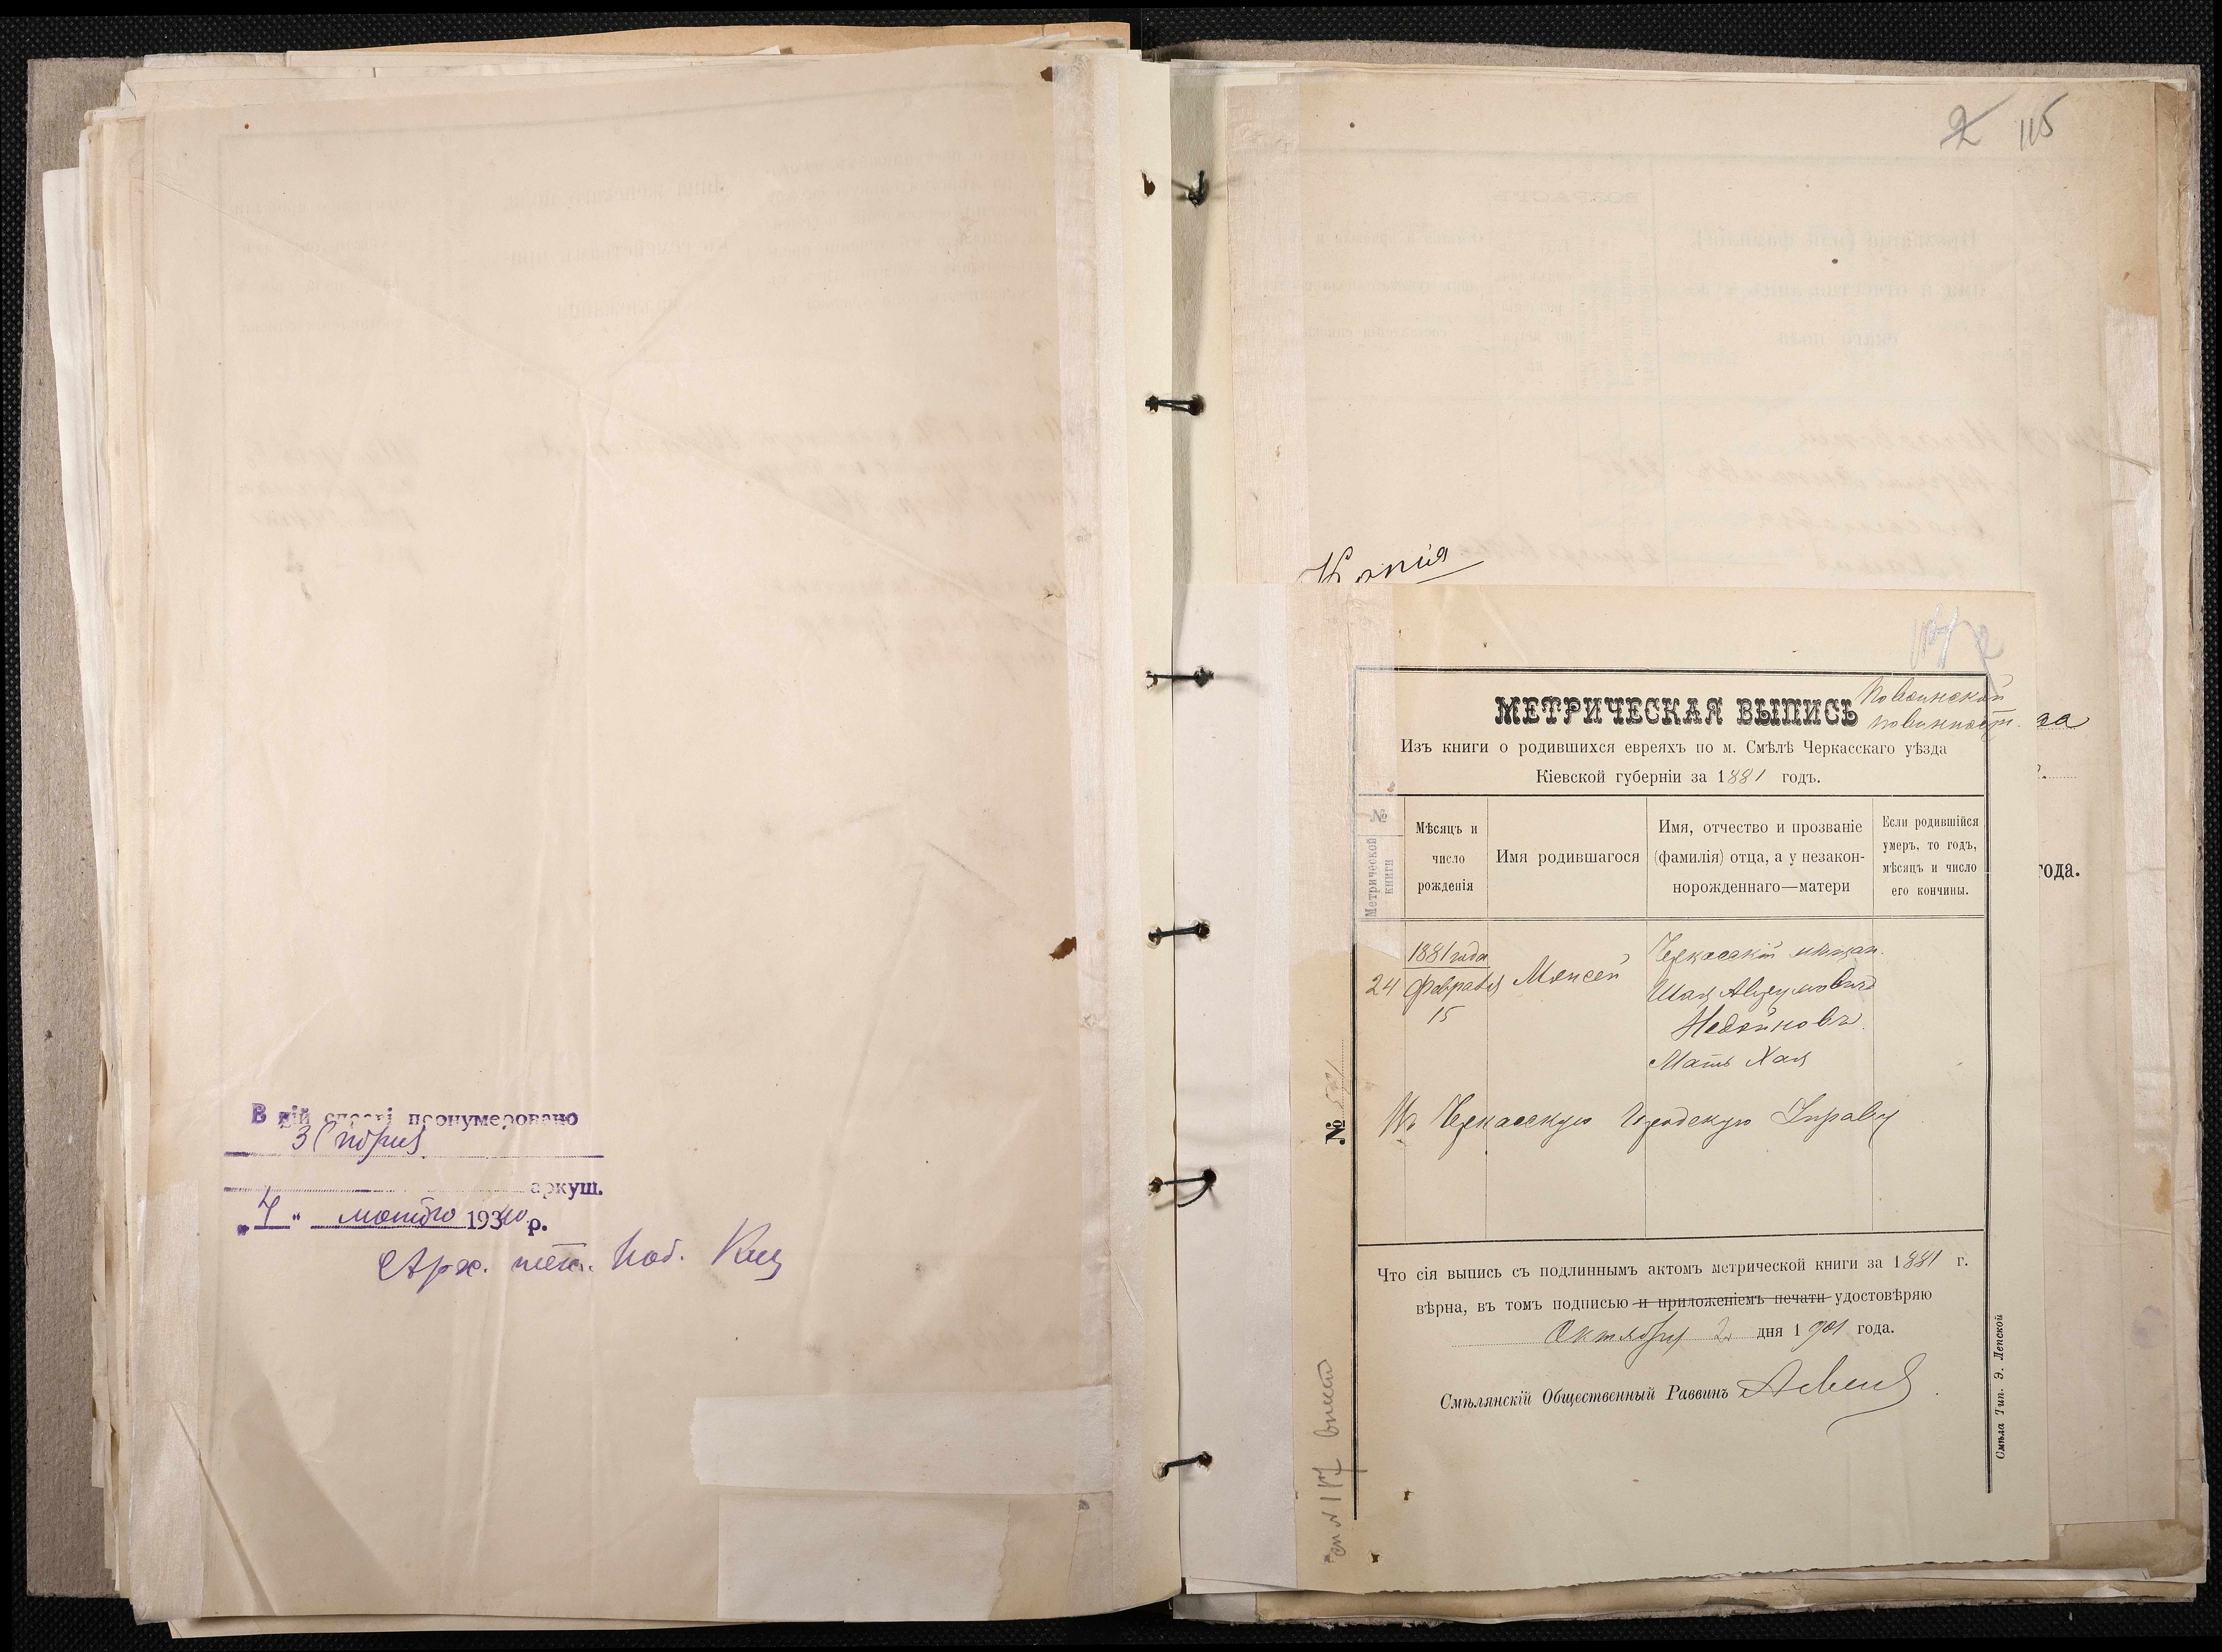 В цій справі пронумеровано
3 (три)
аркуш.
„7“ лютого 1940 р.
Арх. тех.
115
Копія
МЕТРИЧЕСКАЯ ВЫПИСЬ
По воинской
повинност.
за
Изъ книги о родившихся евреяхъ по м. Смѣлѣ Черкасскаго уѣзда
Кіевской губерніи за 1881 годъ.
№ Метрической книги
Мѣсяцъ и число рожденія
Имя родившагося
Имя, отчество и прозваніе (фамилія) отца, а у незаконнорожденнаго—матери
Если родившійся умеръ, то годъ, мѣсяцъ и число его кончины.
года.
24
1881 года
Февраля
15
Моисей
Черкасскій мѣщан.
Шая Аврумовичъ
Недойновъ.
Мать Хая
Въ Черкасскую Городскую Управу
№
Что сія выпись съ подлиннымъ актомъ метрической книги за 1881 г.
вѣрна, въ томъ подписью и приложеніемъ печати удостовѣряю
Октября 2 дня 1901 года.
Смѣлянскій Общественный Раввинъ
Смѣла Тип. Э. Лепской